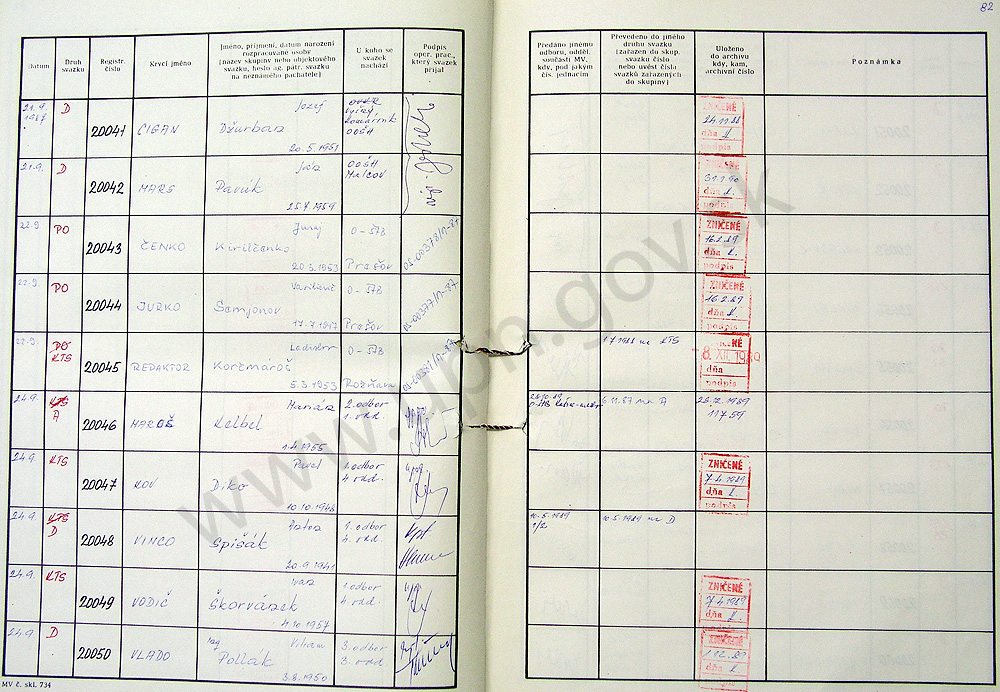 82
Datum
Druh svazku
Registr. číslo
Krycí jméno
Jméno, příjmení, datum narození rozpracované osoby
(název skupiny nebo objektového svazku, heslo ag. pátr. svazku na neznámého pachatele)
U koho se svazek nachází
Podpis oper. prac., který svazek přijal
Předáno jinému odboru, odděl., součásti MV, kdy, pod jakým čís. jednacím
Převedeno do jiného druhu svazku (zařazen do skup. svazku číslo nebo uvést čísla svazků zařazených do skupiny)
Uloženo do archivu kdy, kam, archivní číslo
Poznámka
21.9. 1987 D 20041 CIGAN Jozef Džurban 20.5.1951 OOŠH
ZNIČENÉ 24.11.88 dňa podpis
21.9. D 20042 MARS Ján Pavúk 25.7.1959 OOŠH Malcov
ZNIČENÉ dňa
22.9. PO 20043 ČENKO Juraj Kirilčenko 20.3.1953 O-ŠTB Prešov OS-00378/1-87
ZNIČENÉ 16.2.89 dňa podpis
22.9. PO 20044 JURKO Vasilievič Semjonov 17.7.1917 O-ŠTB Prešov OS-00377/1-87
ZNIČENÉ 16.2.89 dňa podpis
22.9. PO KTS 20045 REDAKTOR Ladislav Korzmároš 5.3.1953 O-ŠTB Rožňava
1988 na KTS
8. XII. 1989 dňa podpis
24.9. KTS A 20046 MAROŠ Marián Kelbel 1.4.1955 2.odbor 1.odd.
6.11.87 na A
1989
11759
24.9. KTS 20047 KOV Pavel Diko 10.10.1946 1.odbor 4.odd.
ZNIČENÉ 7.4.1989 dňa podpis
24.9. KTS D 20048 VINCO Spišák 20.9.1941 1.odbor 4.odd.
10.5.1989
10.5.1989 na D
24.9. KTS 20049 VODIČ Ivan Škorvánek 4.10.1957 1.odbor 4.odd.
ZNIČENÉ 7.4.1989 dňa podpis
24.9. D 20050 VLADO Ing Viliam Pollák 3.8.1950 3.odbor 3.odd.
ZNIČENÉ dňa podpis
MV č. skl. 734
www.upn.gov.sk